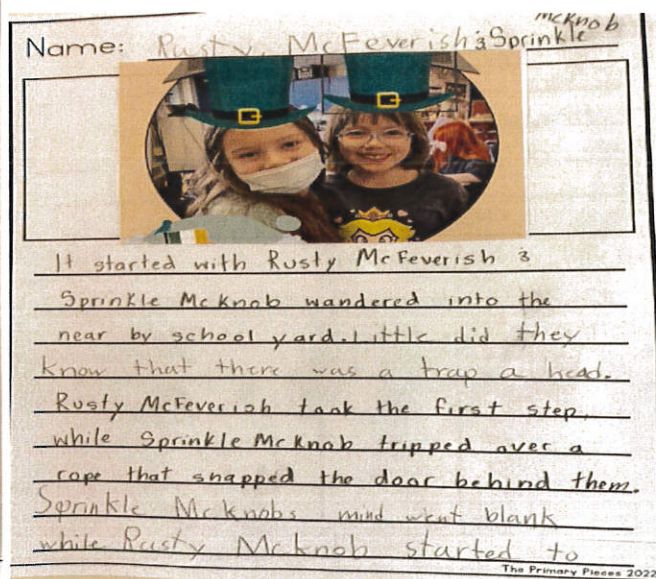 Name: Rusty McFeverish & Sprinkle McKnob
It started with Rusty McFeverish &
Sprinkle McKnob wandered into the
near by school yard. Little did they
know that there was a trap a head.
Rusty McFeverish took the first step,
while Sprinkle McKnob tripped over a
rope that snapped the door behind them.
Sprinkle McKnobs mind went blank
while Rusty McKnob started to
The Primary Pieces 2022